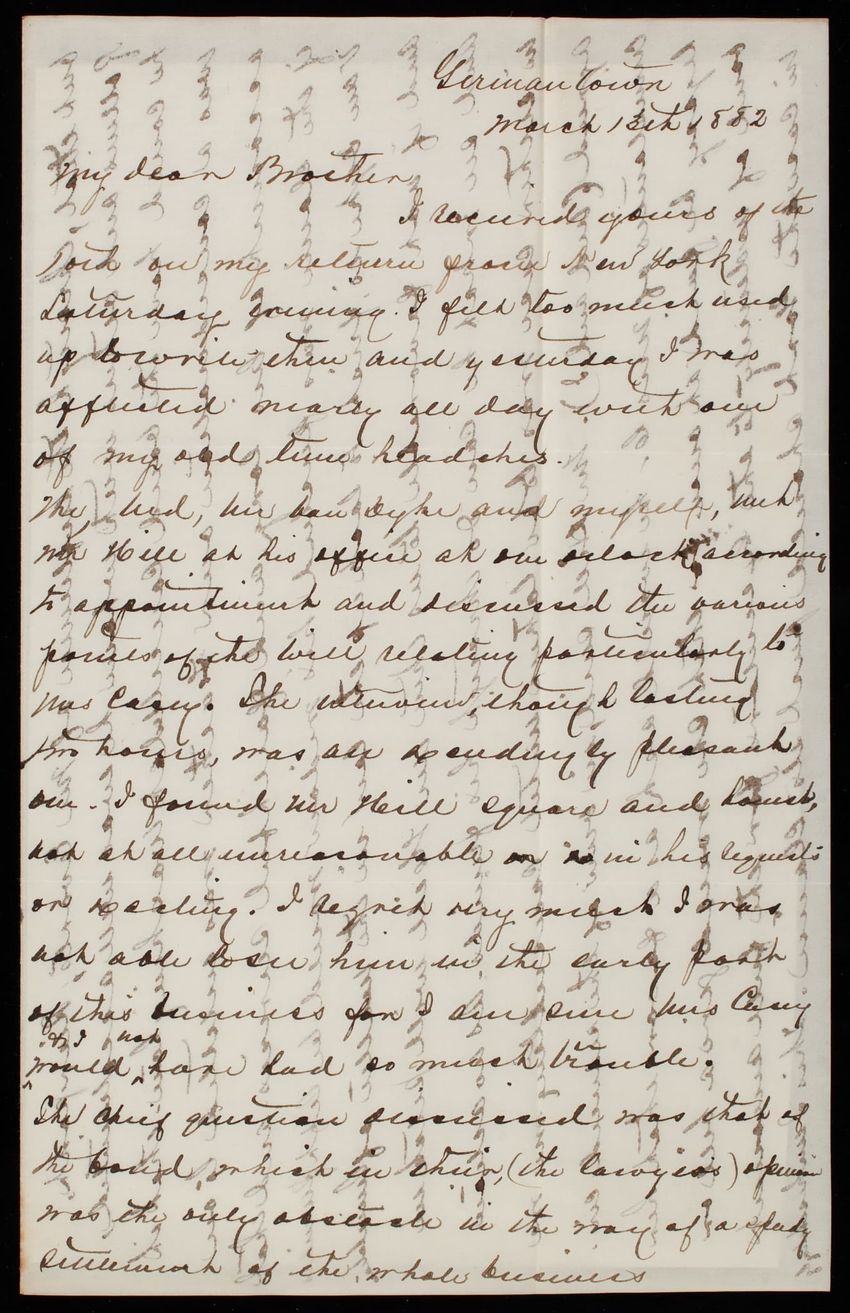 Germantown
March 13th 1882
My dear Brother
I received yours of the
10th on my return from New York
Saturday evening. I felt too much used
up to write then and yesterday I was
afflicted nearly all day with one
of my old time headches.
We, Ned, Mr Van Dyke and myself, met
Mr Hill at his office at one oclock according
to appointment and discussed the various
points of the Will relating particularly to
Mrs Casey. The interview, though lasting
two hours, was an exceedingly pleasant
one. I found Mr Hill square and honest,
not at all unreasonable in his requests
or exacting. I regret very much I was
not able to see him in the early part
of this business for I am sure Mrs Casey
& I not
would have had so much trouble.
The chief question discussed was that of
the bond, which in their, (the lawyers) opinion
was the only obstacle in the way of a speedy
settlement of the whole business